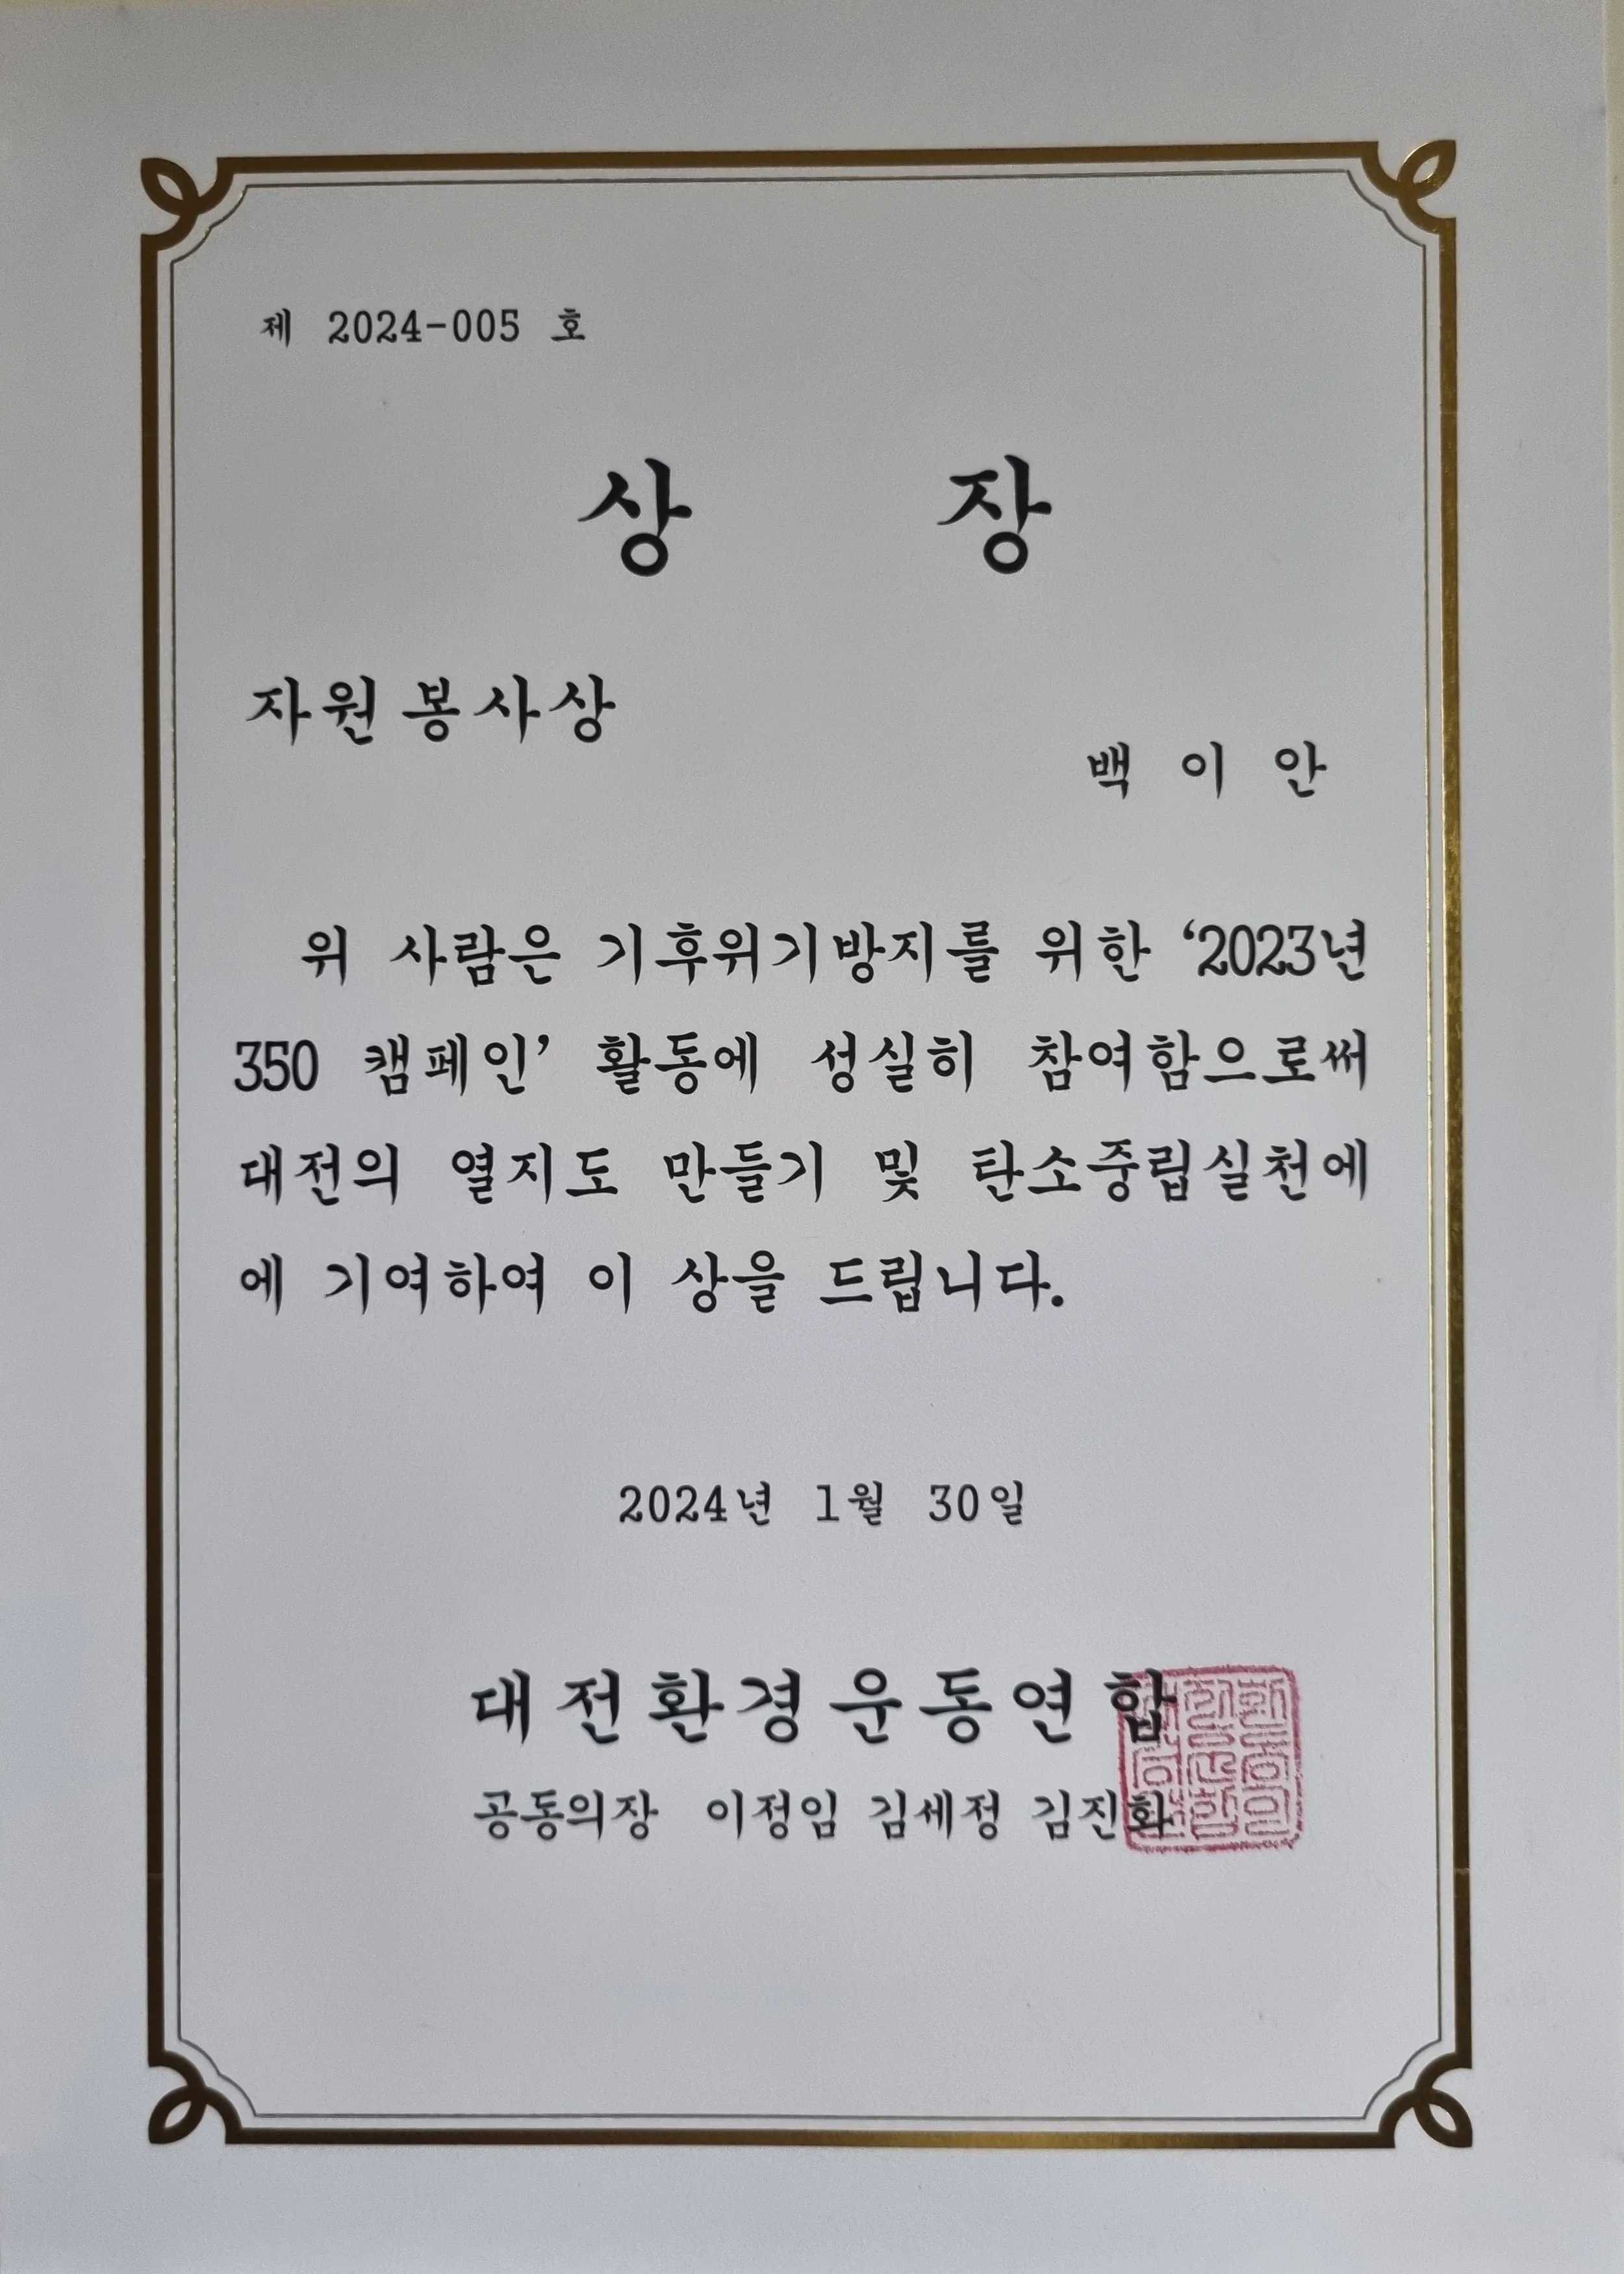 제 2024-005 호
상 장
자원봉사상
백 이 안
위 사람은 기후위기방지를 위한 ‘2023년
350 캠페인’ 활동에 성실히 참여함으로써
대전의 열지도 만들기 및 탄소중립실천에
에 기여하여 이 상을 드립니다.
2024년 1월 30일
대전환경운동연합
공동의장 이정임 김세정 김진화